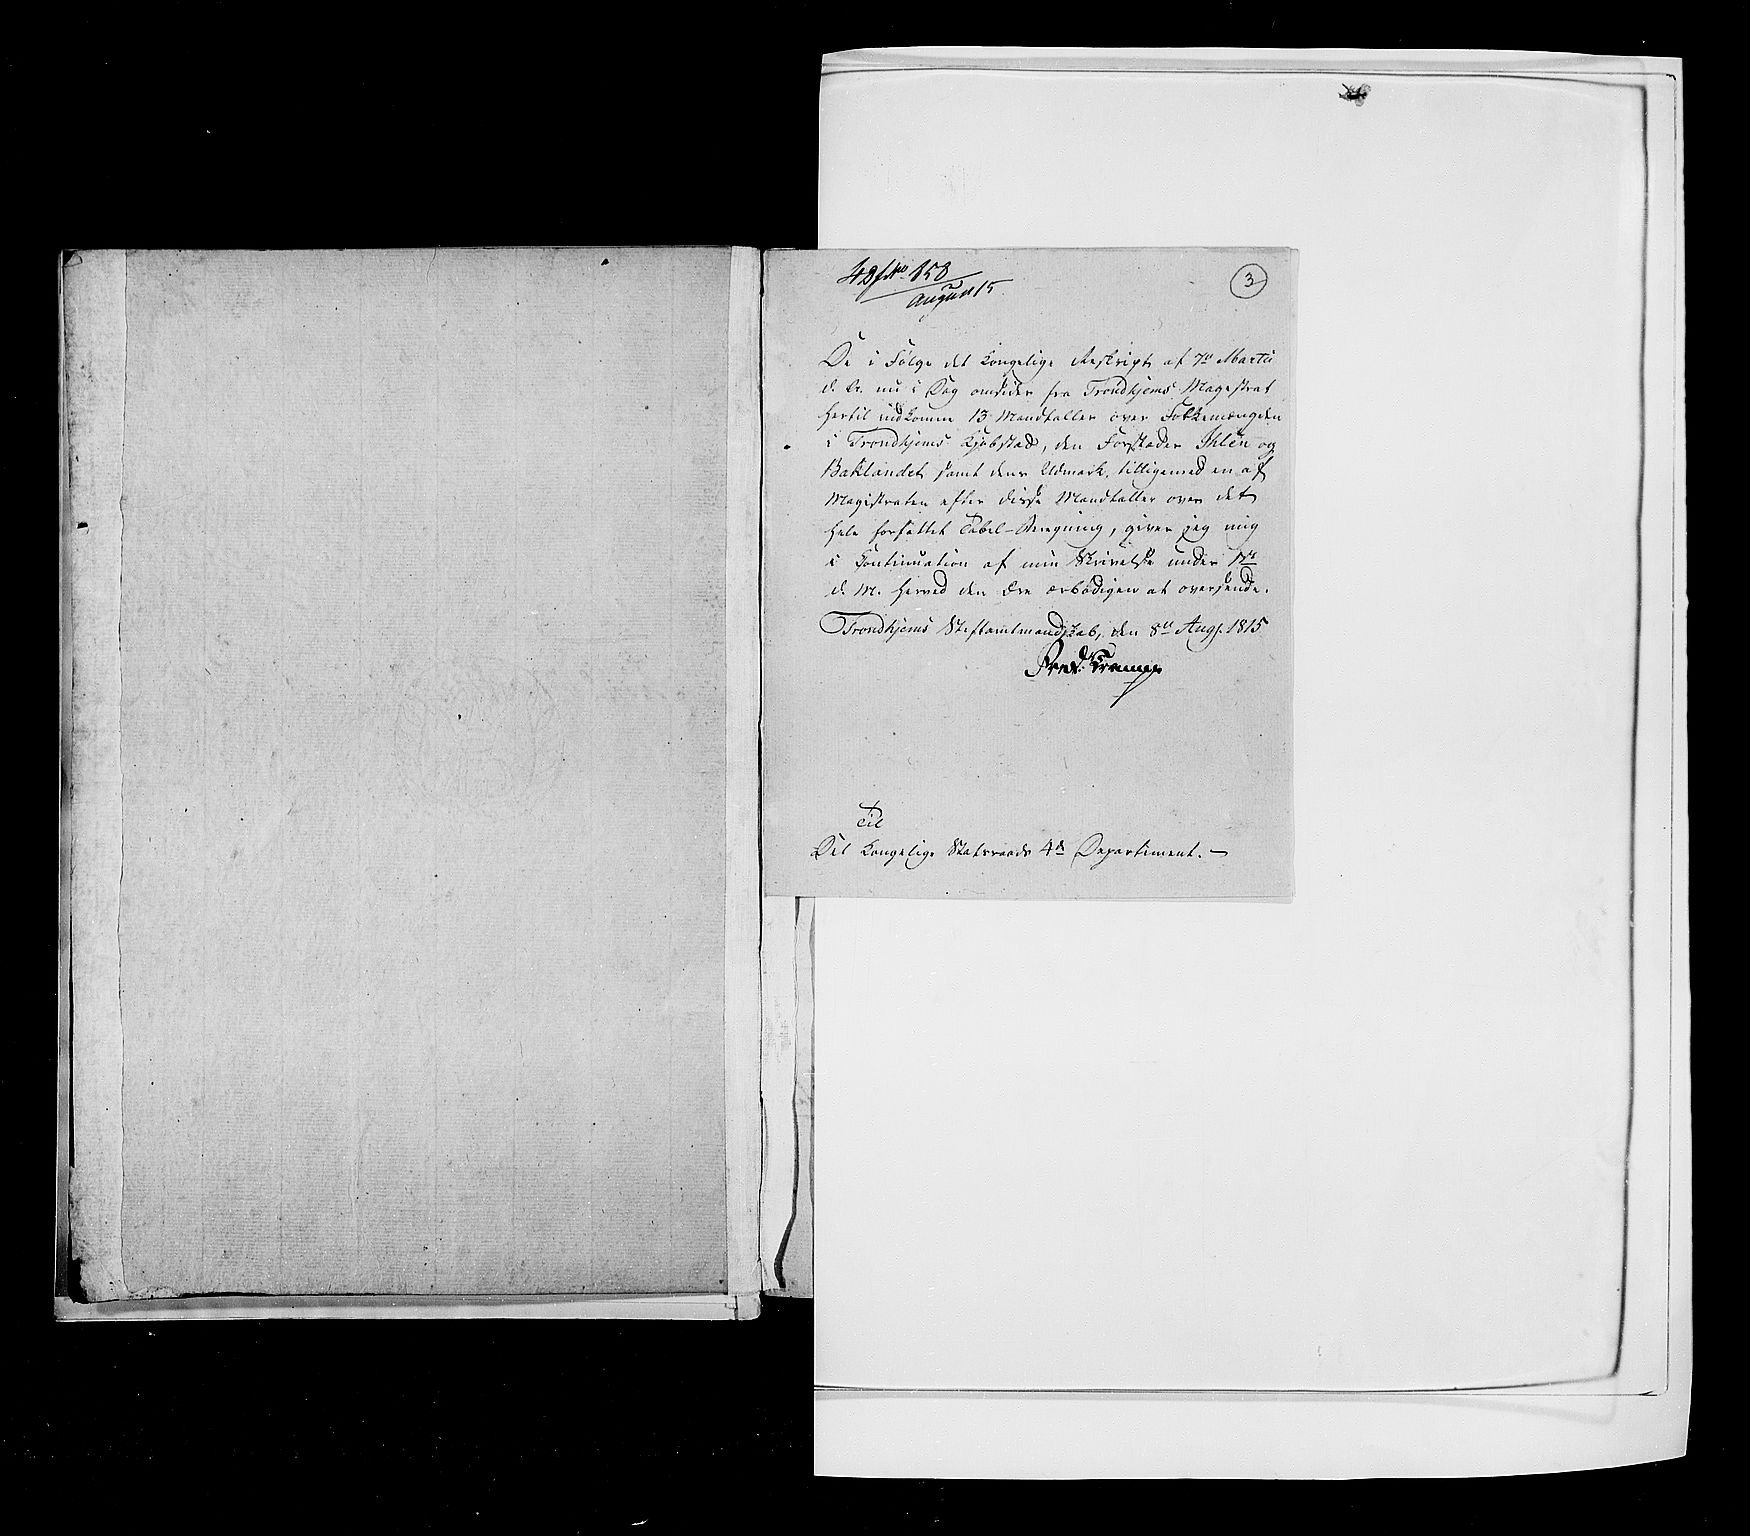 858
August 15
3
De i Følge det kongelige Reskript af 7de Martii
d. A. nu i Dag omsider fra Trondhjems Magistrat
hertil indkomne 13 Mandtaller over Folkemængden
i Trondhjems Kjøbstad, den Forstæder Ihlen og
Baklandet samt dens Udmark, tilligemed en af
Magistraten efter disse Mandtaller over det
hele forfattet Tabel-Beregning, giver jeg mig
i Continuation af min Skrivelse under 1ste
d. M. herved den Ære ærbødigen at oversende.
Trondhjems Stiftamtmandskab, den 8de Aug. 1815
Fred. Trampe
Til
Det kongelige Statsraads 4de Departement. —